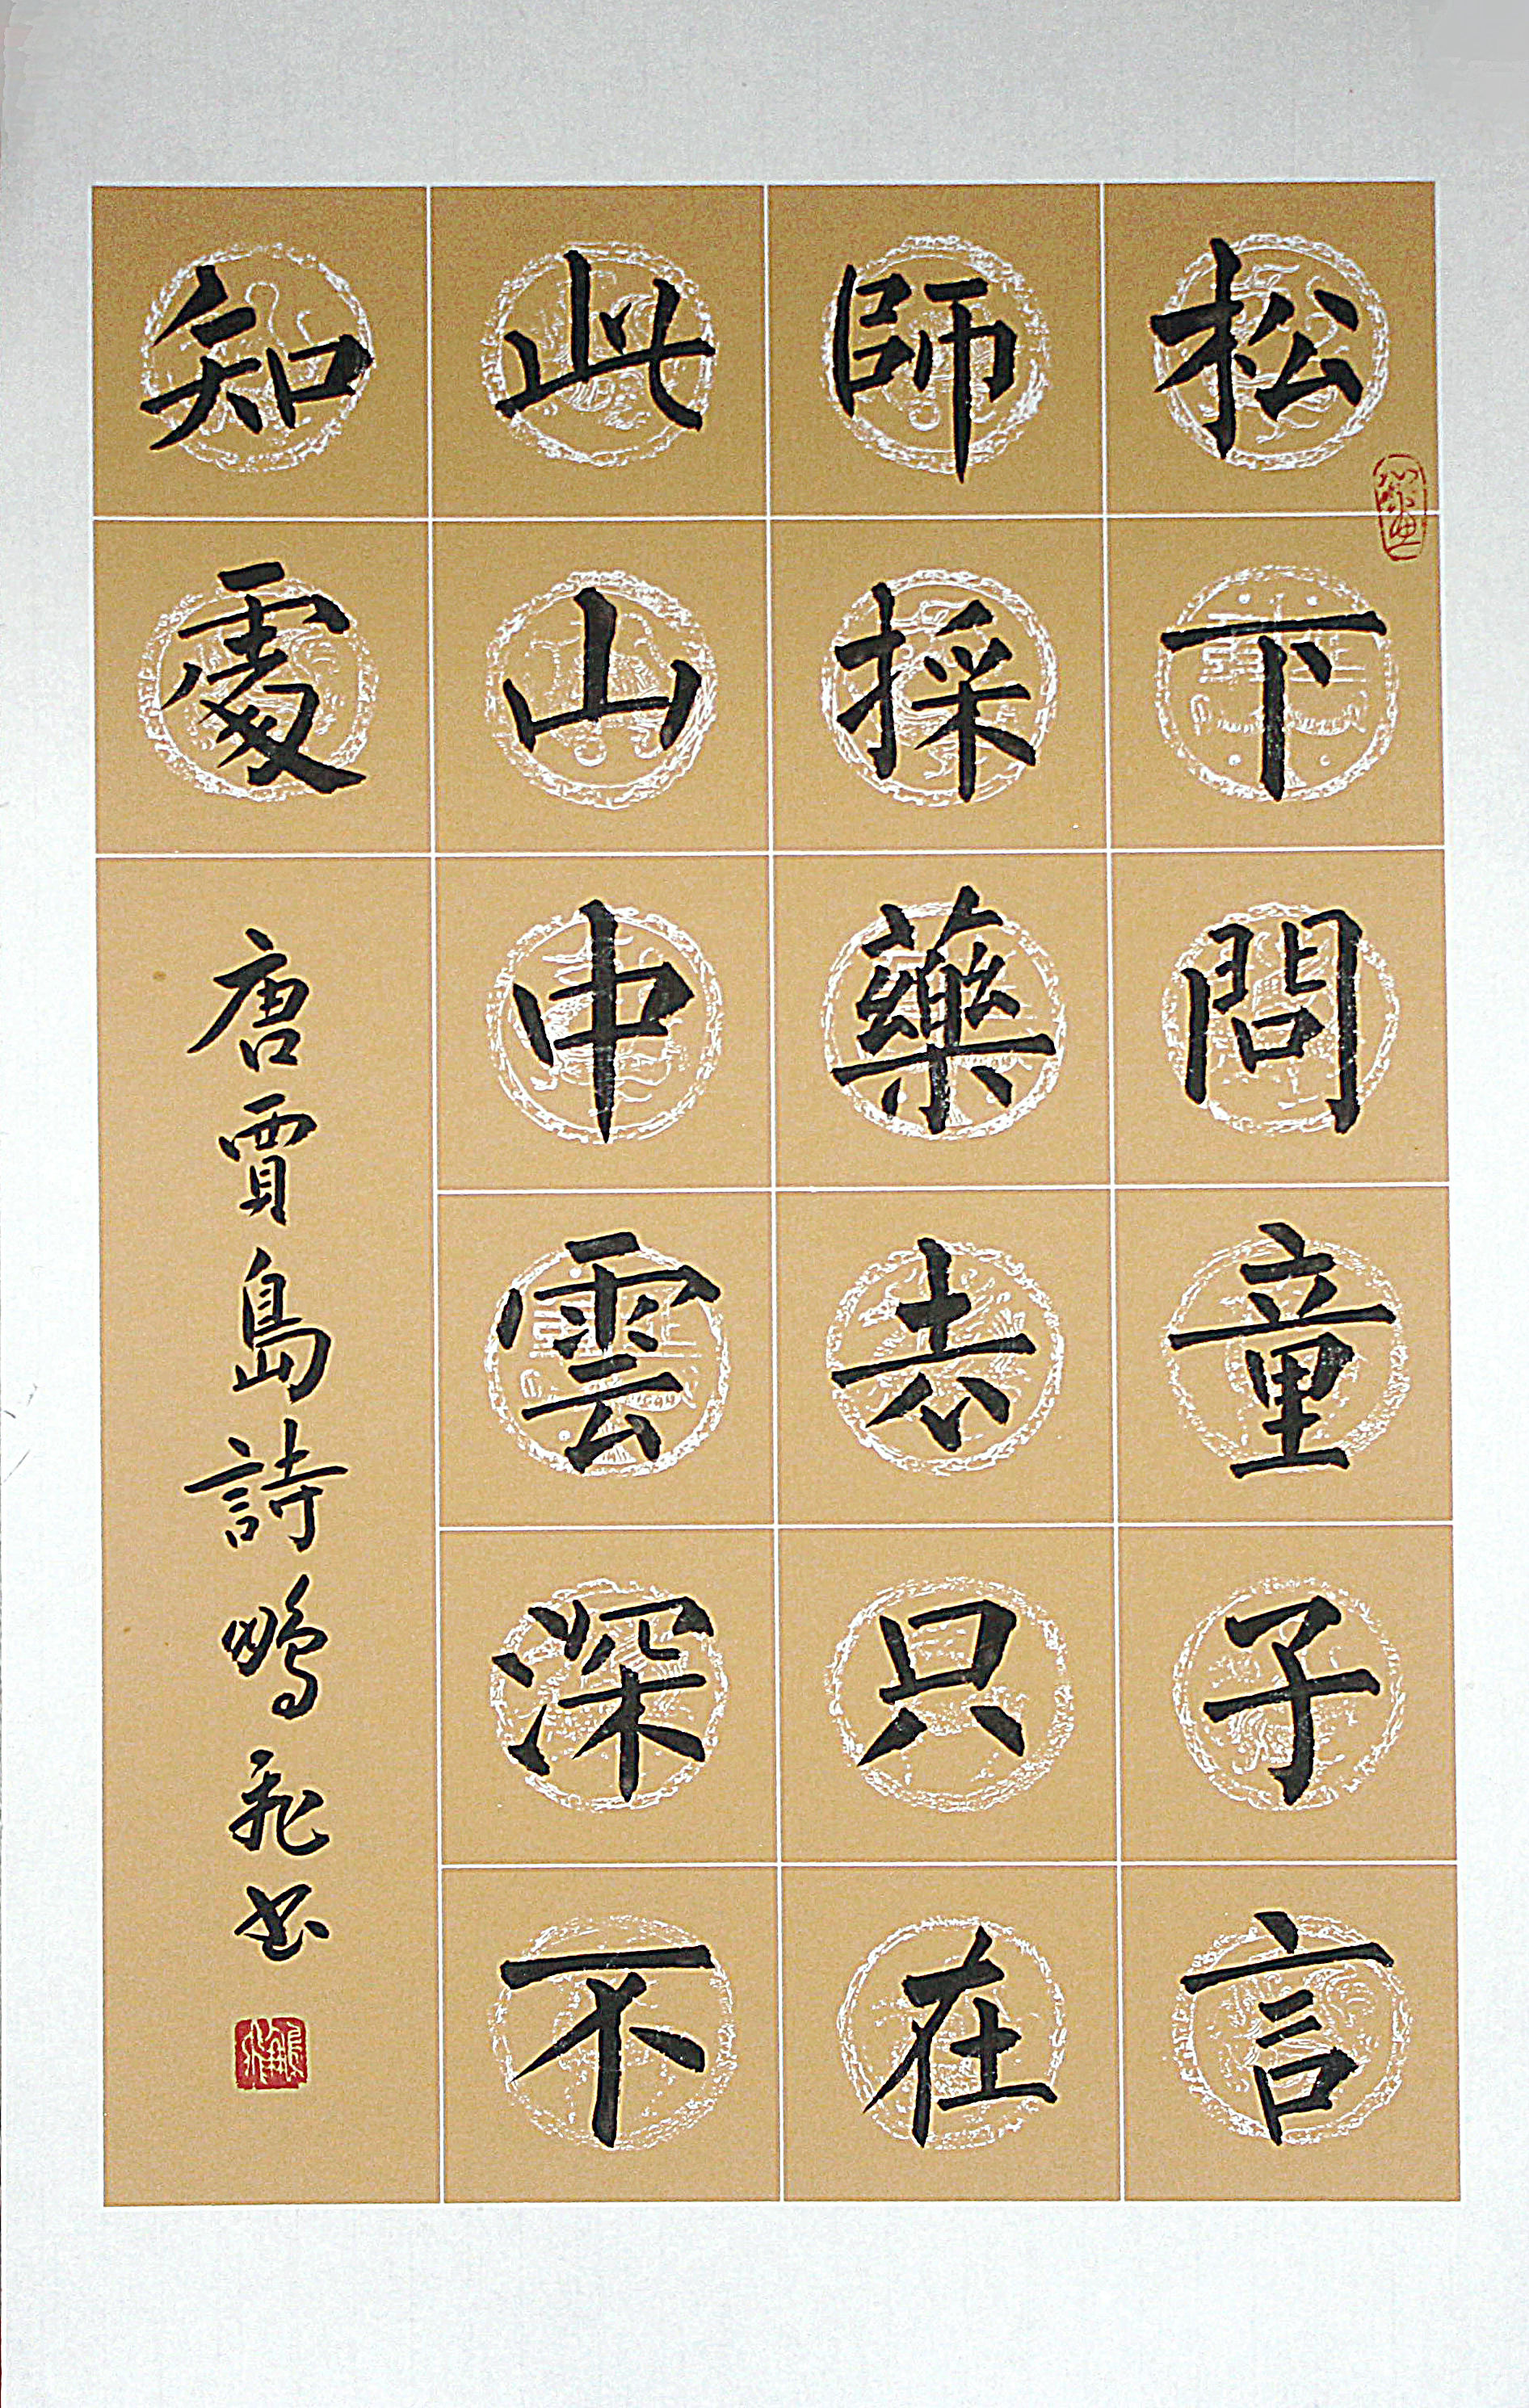 松下問童子言
師採藥去只在
此山中雲深不
知處
唐賈島詩鵬飛书